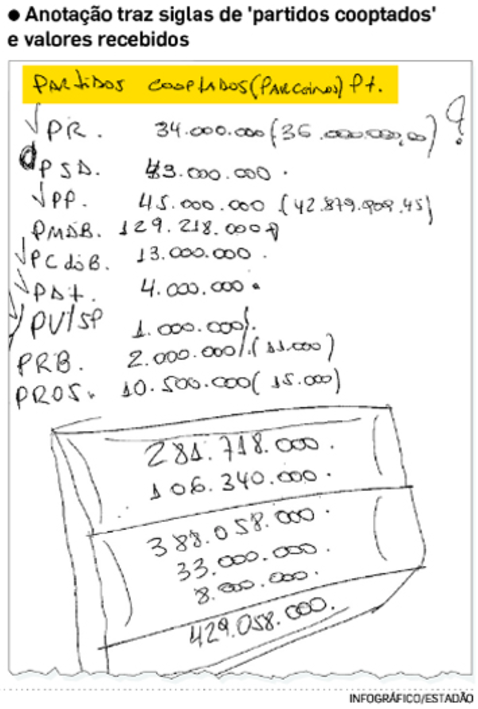 ● Anotação traz siglas de 'partidos cooptados'
e valores recebidos
PARTIDOS COOPTADOS (PARCEIROS) Pt.
PR. 34.000.000 (36.000.000,00) ?
PSD. 43.000.000.
PP. 45.000.000 (42.879.909.45)
PMDB. 129.218.000
PCdoB. 13.000.000.
PDt. 4.000.000.
PV/SP 1.000.000
PRB. 2.000.000 (11.000)
PROS. 10.500.000 (15.000)
281.718.000.
106.340.000.
388.058.000.
33.000.000.
8.000.000.
429.058.000.
INFOGRÁFICO/ESTADÃO